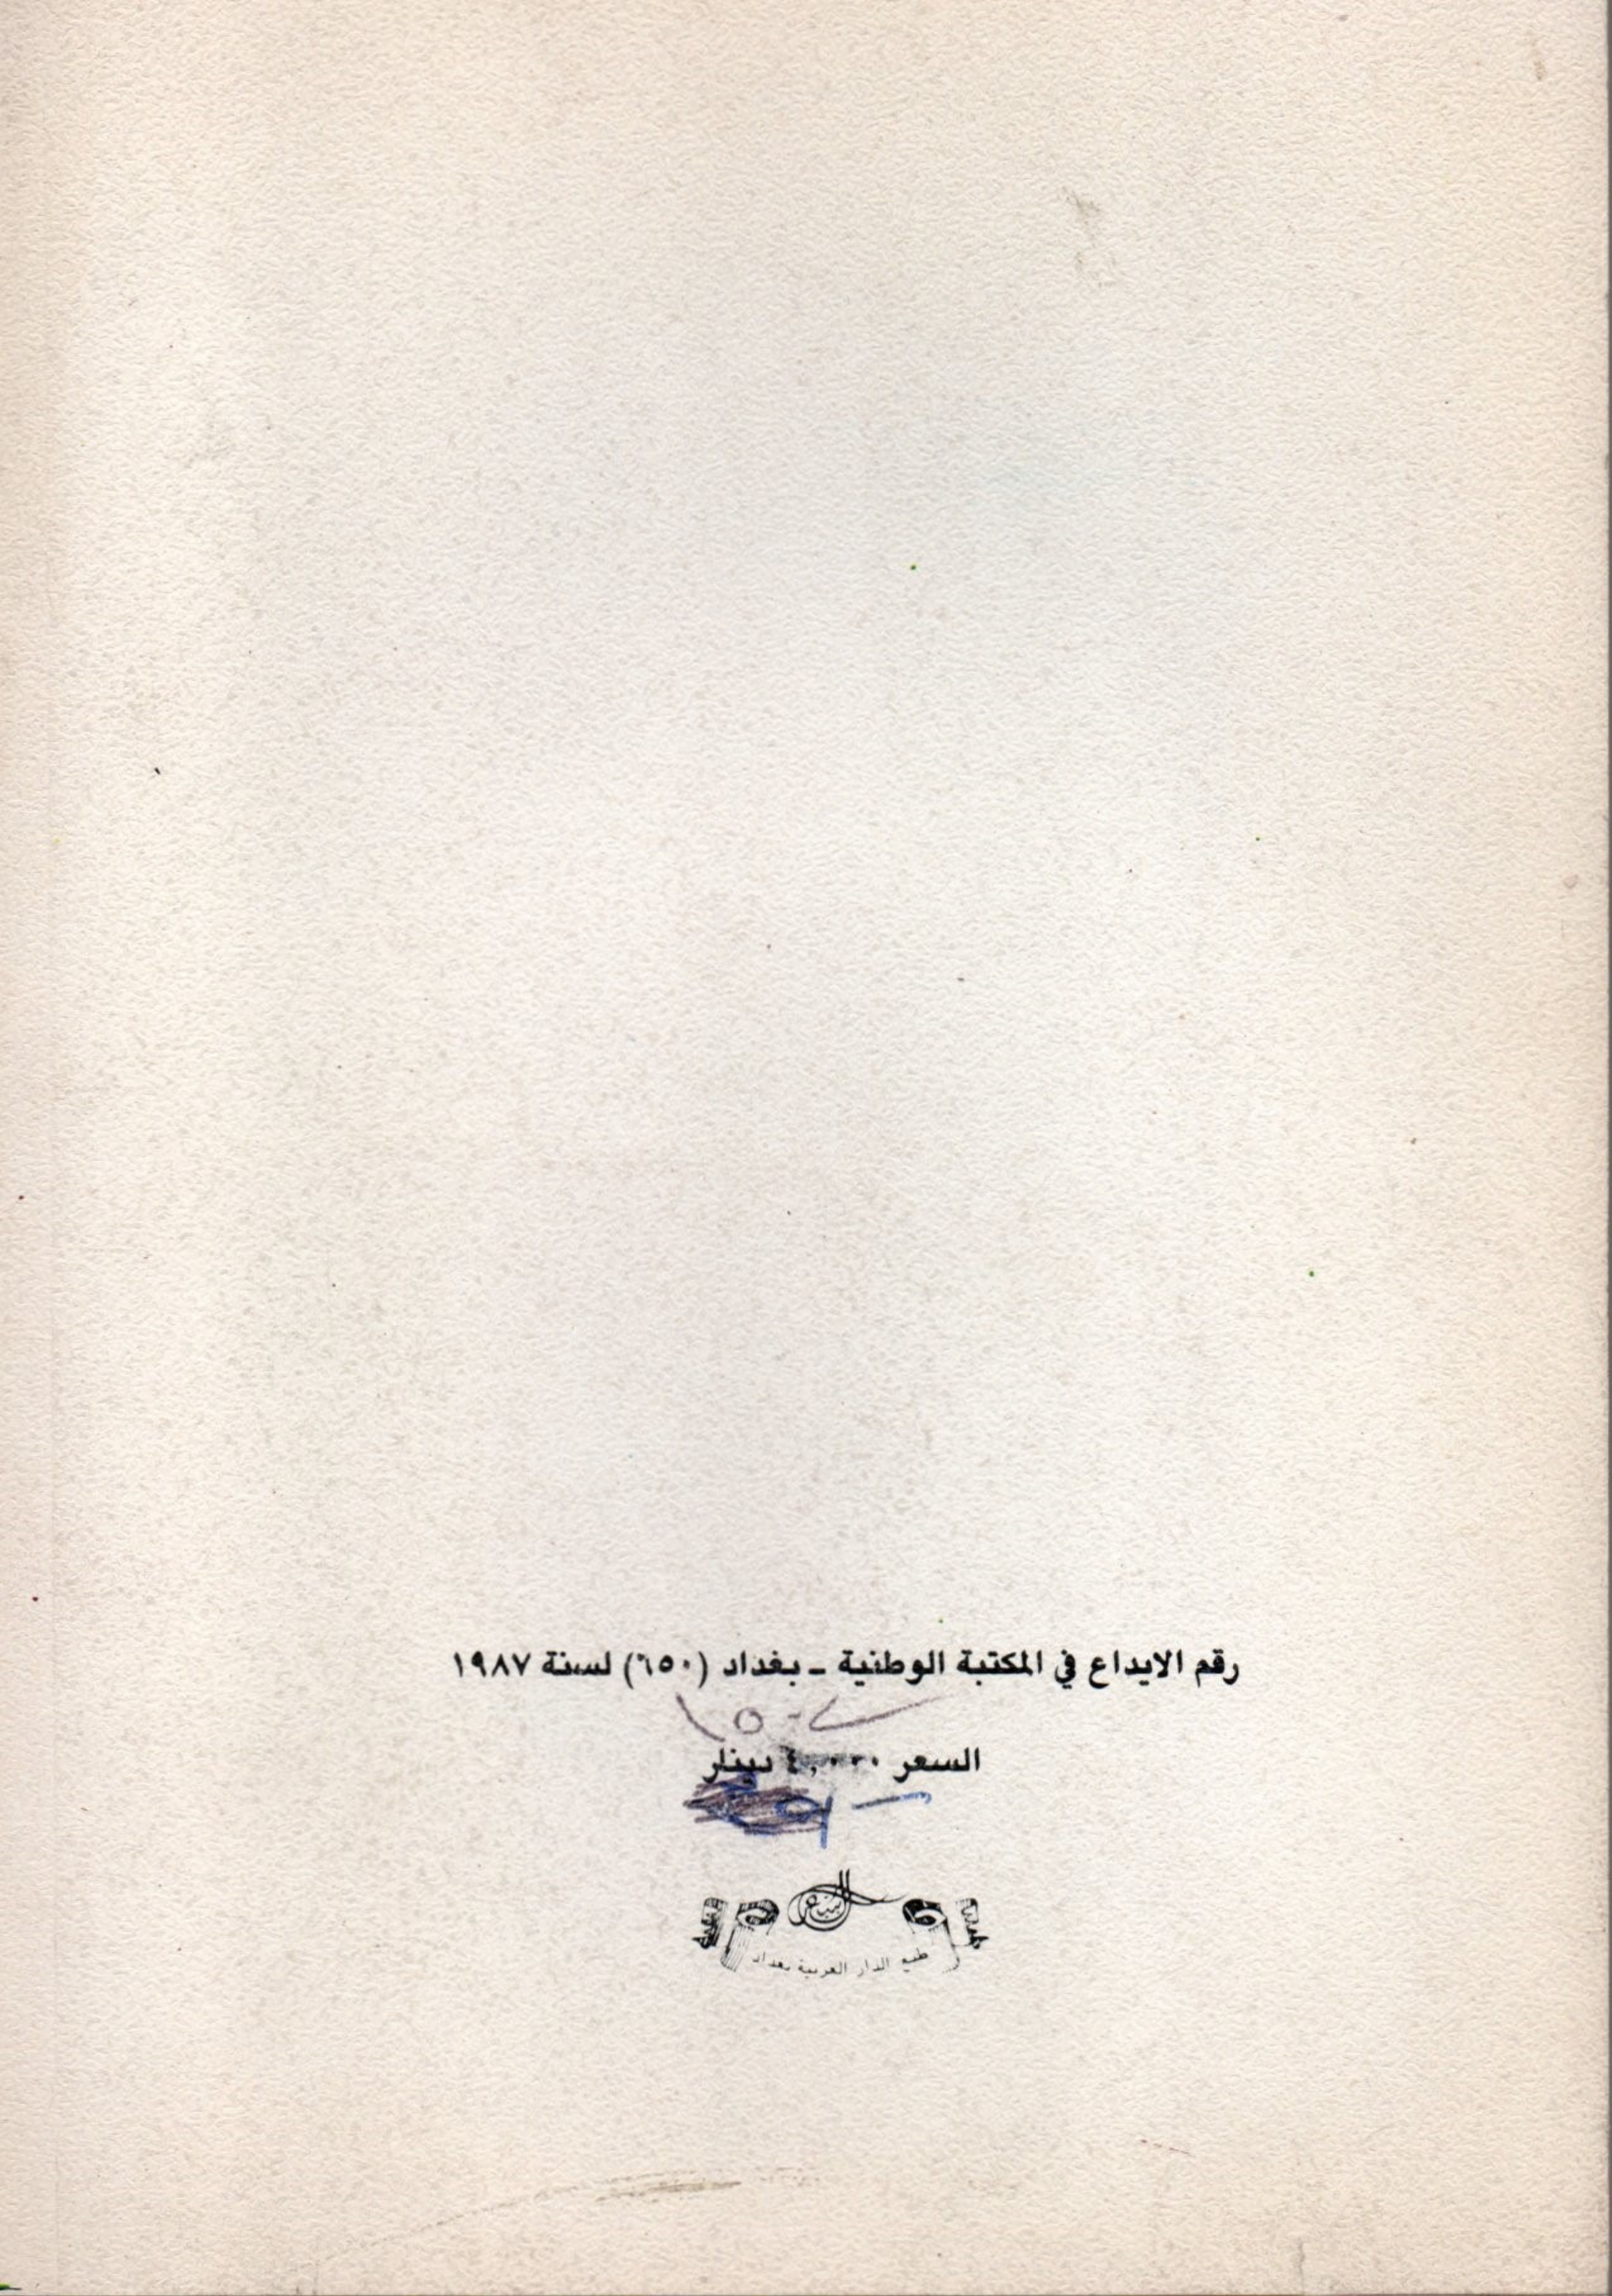 رقم الايداع في المكتبة الوطنية ـ بغداد (٦٥٠) لسنة ١٩٨٧
السعر ٤,٠٠٠ دينار
طبع الدار العربية بغداد